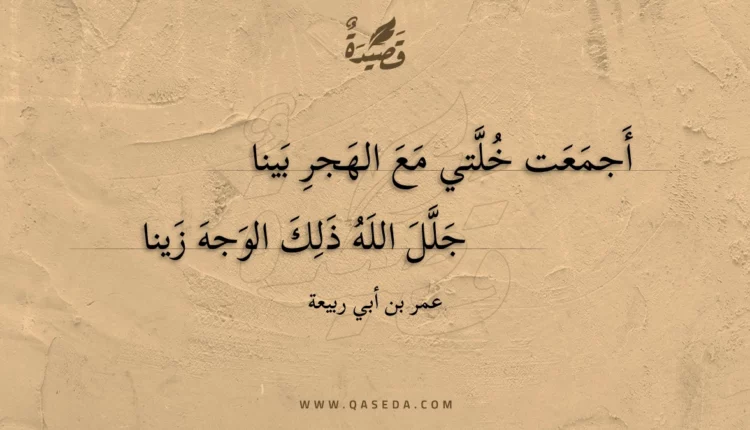 قَصِيدَةٌ
أَجمَعَت خُلَّتي مَعَ الهَجرِ بَينا
جَلَّلَ اللَهُ ذَلِكَ الوَجهَ زَينا
عمر بن أبي ربيعة
WWW.QASEDA.COM